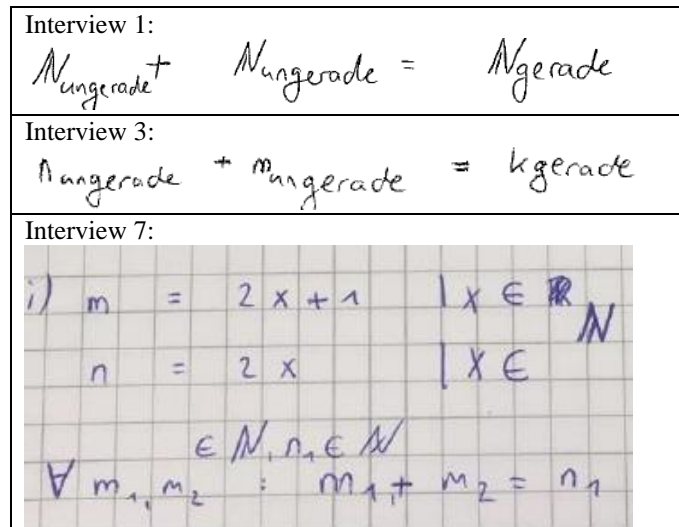 Interview 1:
ℕungerade + ℕungerade = ℕgerade
Interview 3:
nungerade + mungerade = kgerade
Interview 7:
i) m = 2x + 1 | x ∈ ℕ
n = 2x | x ∈
∈ ℕ, n₁ ∈ ℕ
∀ m₁, m₂ : m₁ + m₂ = n₁